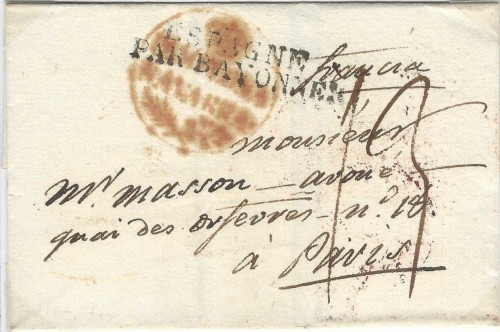 ESPAGNE
PAR BAYONNE
francia
monsieur
Mr. masson avoué
quai des orfevres n.° 18
à Paris